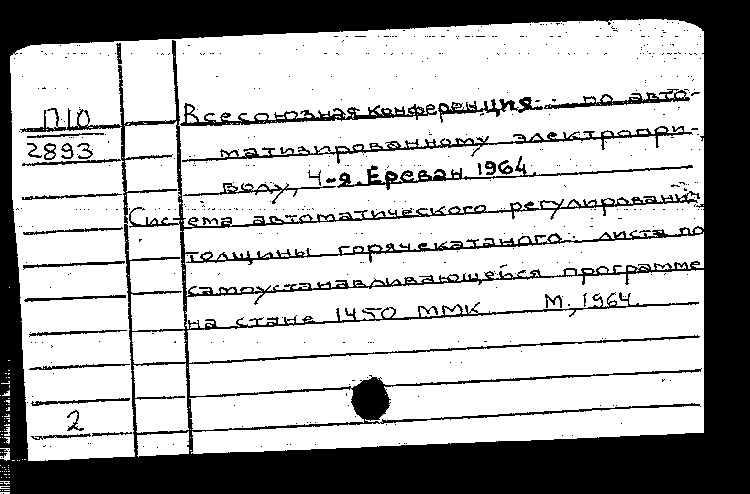 П10
2893
Всесоюзная конференция по авто-
матизированному электропри-
воду, 4-я. Ереван. 1964.
Система автоматического регулирования
толщины горячекатаного листа по
самоустанавливающейся программе
на стане 1450 ММК М., 1964.
2